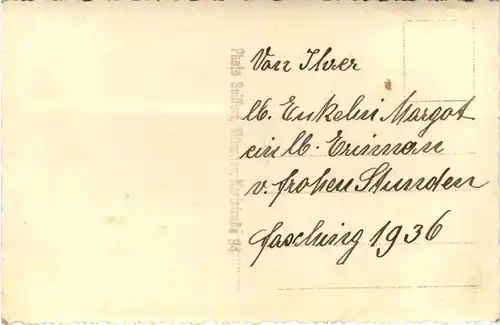 Von Ihrer
lb. Enkelin Margot
ein lb. Erinnern
v. frohen Stunden
Fasching 1936
Photo Seifert,